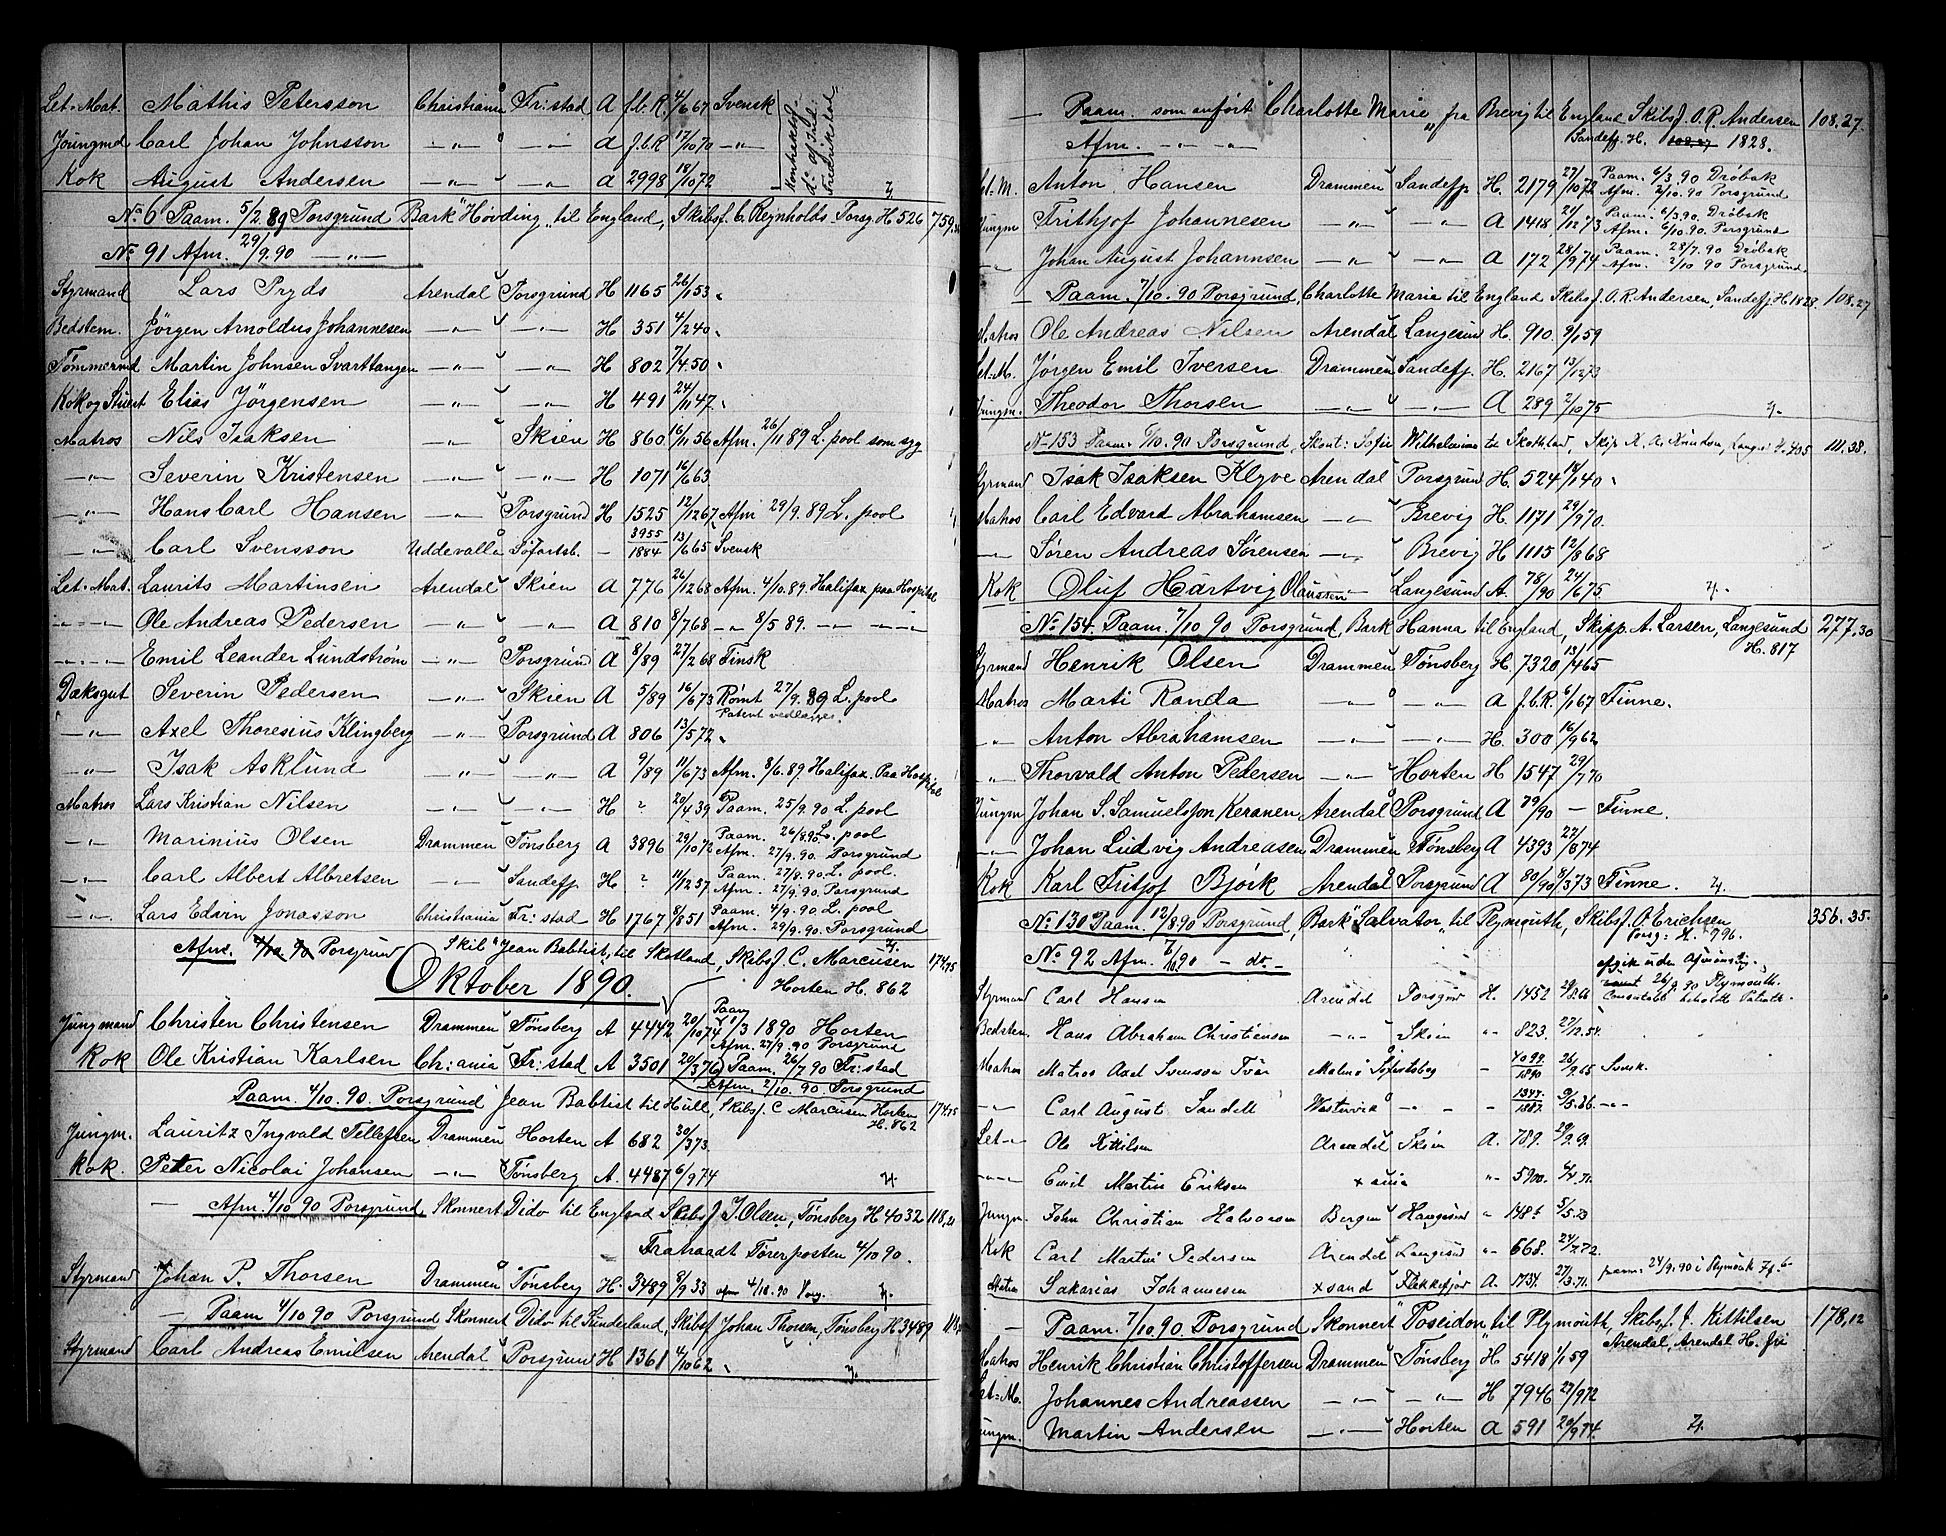 Let=Mat. Mathis Petersson Christiania Fr:stad A f.b.R. 4/6 67 Svensk
Jüngmd Carl Johan Johnsson —„— —„— A f.b.R 17/10 70 —„—
Kok August Andersen —„— —„— A 2998 18/10 72
No 6 Paam. 5/2 89 Porsgrund Bark "Høvding" til England, Skibsf. C. Reynholds Porsg H 526 759.
No 91 Afm. 29/9.90 —„—
Styrmand Lars Pryds Arendal Porsgrund H 1165 26/1 53
Bedstem. Jörgen Arnoldus Johannesen —„— —„— H 351 4/2 40
Tømmermd Martin Johnsen Svarttangen —„— —„— H 802 7/4 50
Kok og Stuert Elias Jörgensen —„— —„— H 491 24/11 47
Matros Nils Isaksen —„— Skien H 860 16/11 56 Afm. 26/11 89 L. pool som syg
—„— Severin Kristensen —„— —„— H 1071 16/6 63
—„— Hans Carl Hansen —„— Porsgrund H 1525 12/12 67 Afm 29/9. 89 L. pool
—„— Carl Svensson Uddevalla Söfartsb. – 3955/1884 13/6 65 Svensk
Let=Mat. Laurits Martinsen Arendal Skien A 776 26/12 68 Afm. 4/10.89. Halifax paa Hospital
—„—„— Ole Andreas Pedersen —„— —„— A 810 8/7 68 —„— 8/5 89. —„— —„—
—„—„— Emil Leander Lundstrøm —„— Porsgrund A 8/89 27/2 68 Finsk
Dæksgut Severin Pedersen —„— Skien A 5/89 16/6 73 Rømt 27/9. 89 L. pool
Patent vedlægges.
—„— Axel Thoresius Klingberg —„— Porsgrund A 806 13/5 72
—„— Isak Asklund —„— —„— A 9/89 11/6 73 Afm. 8/6.89 Halifax. Paa Hospital
Matros Lars Kristian Nilsen —„— —„— H ? 20/4 39 Paam. 25/9.90 L. pool
—„— Marinius Olsen Drammen Tønsberg A 3896 29/10 72 Paam. 26/8.90 L. pool
Afm. 27/9.90. Porsgrund
—„— Carl Albert Albretsen —„— Sandefj. H ? 11/12 37 Paam. 27/8.90 L. pool.
Afm. 27/9.90. Porsgrund
—„— Lars Edvin Jonasson Christiania Fr:stad H 1767 8/8 51 Paam. 4/9.90 L. pool
Afm. 29/9.90. Porsgrund
Afm. 4/10. 90 Porsgrund Skib "Jean Babtist" til Skotland, Skibsf. C. Marcusen 174.75
Horten H. 862
Oktober 1890.
Jüngmand Christen Christensen Drammen Tønsberg A 4442 20/10 74 Paam 1/3 1890 Horten
Afm. 27/9.90 Porsgrund
Kok Ole Kristian Karlsen Ch:ania Fr:stad A 3501 20/3 76 Paam. 26/7 90 Fr:stad
Afm. 2/10. 90 Porsgrund
Paam. 4/10. 90. Porsgrund Jean Babtist til Hull, Skibsf. C Marcusen Horten 174.75
H. 862
Jüngm. Lauritz Ingvald Tellefsen Drammen Horten A 682 30/3 73
Kok. Peter Nicolai Johansen —„— Tønsberg A. 4487 6/9 74
— Afm. 4/10 90 Porsgrund, Skonnert Dido til England Skibsf. J. Olsen, Tønsberg H 4032 118.21
Fratraadt Førerposten 4/10 90.
Styrmand Johan P. Thorsen Drammen Tønsberg H. 3489 8/9 33 afm 4/10.90 Porsg.
— Paam 4/10 90 Porsgrund Skonnert Dido til Sunderland, Skibsf Johan Thorsen, Tønsberg H 3489
Styrmand Carl Andreas Emilsen Arendal Porsgrund H 1361 4/10 62
— Paam. som anført "Charlotte Marie" fra Brevig til England Skibsf. O. R. Andersen 108.27.
Afm. —„— —„— Sandefj. H. 108.27 1828.
Let. M. Anton Hansen Drammen Sandefj. H. 2179 27/10 72 Paam. 6/3.90 Drøbak
Afm. 2/10. 90 Porsgrund
Jungm Frithjof Johannesen —„— —„— A 1418 21/12 73 Paam. 6/3.90. Drøbak
Afm. 6/10.90. Porsgrund
—„— Johan August Johannsen —„— —„— A 172 28/9 74 Paam. 28/7.90 Drøbak
Afm. 2/10 90 Porsgrund.
— Paam. 7/10. 90 Porsgrund, Charlotte Marie til England Skibsf. O. R. Andersen, Sandefj H 1828. 108.27
Matros Ole Andreas Nilsen Arendal Langesund H. 910. 9/1 59
Let=M. Jørgen Emil Iversen Drammen Sandefj. H. 2167 13/12 73
Jungm. Theodor Thorsen —„— —„— A 289 2/10 75
No 153 Paam. 7/10. 90 Porsgrund, Skont: Sofie Wilhelmine til Skotland, Skip K. A. Knudsen, Langes H. 405 111.38.
Styrmand Isak Isaksen Klyve Arendal Porsgrund H. 524 14/1 40
Matros Carl Edvard Abrahamsen —„— Brevig H. 1171 29/9 70.
—„— Søren Andreas Sørensen —„— Brevig H 1115 12/8 68
Kok Oluf Hartvig Olaussen —„— Langesund A. 78/90 24/6 75
No 154. Paam. 7/10 90 Porsgrund, Bark Hanna til England, Skipp. A. Larsen, Langesund 277.30
H. 817
Styrmand Henrik Olsen Drammen Tønsberg H. 7320 13/4 65
Matros Marti Randa —„— —„— A f.b.R. 6/1 67 Finne.
—„— Anton Abrahamsen —„— —„— H. 300 16/9 62
—„— Thorvald Anton Pedersen —„— Horten H 1547 29/7 70
Jungm Johan S. Samuelsson Keranen, Arendal Porsgrund A 79/90 – Finne.
—„— Johan Ludvig Andreasen Drammen Tønsberg A 4393 27/8 74
Kok Karl Fritjof Bjørk Arendal Porsgrund A 80/90 8/3 73 Finne.
No 130 Paam. 12/8.90 Porsgrund, Bark "Salvator" til Plymouth, Skibsf. O. Erichsen 356.35.
Porsg: H. 996.
No 92 Afm. 7/10 90 – do. –
Styrmand Carl Hansen Arendal Porsgrd H. 1452 26/9. 90 Plymouth.
Bedstem. Hans Abraham Christiensen —„— Skien „ 823. 27/12.54.
Matros Matros Axel Svensson Tvär Malmö Söfartsbog – 4099/1890 26/9.65 Svensk.
—„— Carl August Sandell Westervik —„— – 1347/1887. 9/5.36. —„—
Let—„— Ole Kittilsen Arendal Skien A. 789. 29/9.69.
—„—„— Emil Martin Eriksen x ania „ 5900. 6/4.71.
Jungm. John Christian Halvorsen Bergen Haugesund „ 148. 5/5.73
Kok Carl Martin Pedersen Arendal Langesund „ 668. 24/7.72.
Matros Sakarias Johannesen x sand Flekkefjord A. 1737. 27/3.71. paam. 24/9.90 i Plymouth
— Paam. 7/10. 90 Porsgrund Skonnert "Poseidon" til Plymouth, Skibsf. J. Kittilsen 178,12
Arendal, Arendal H. fri
Matros Henrik Christian Christoffersen Drammen Tønsberg H 5418 1/1 59
Let=M. Johannes Andreassen —„— —„— H 7946 27/9 72
Jungm. Martin Andersen —„— Horten A 591 20/9 74.